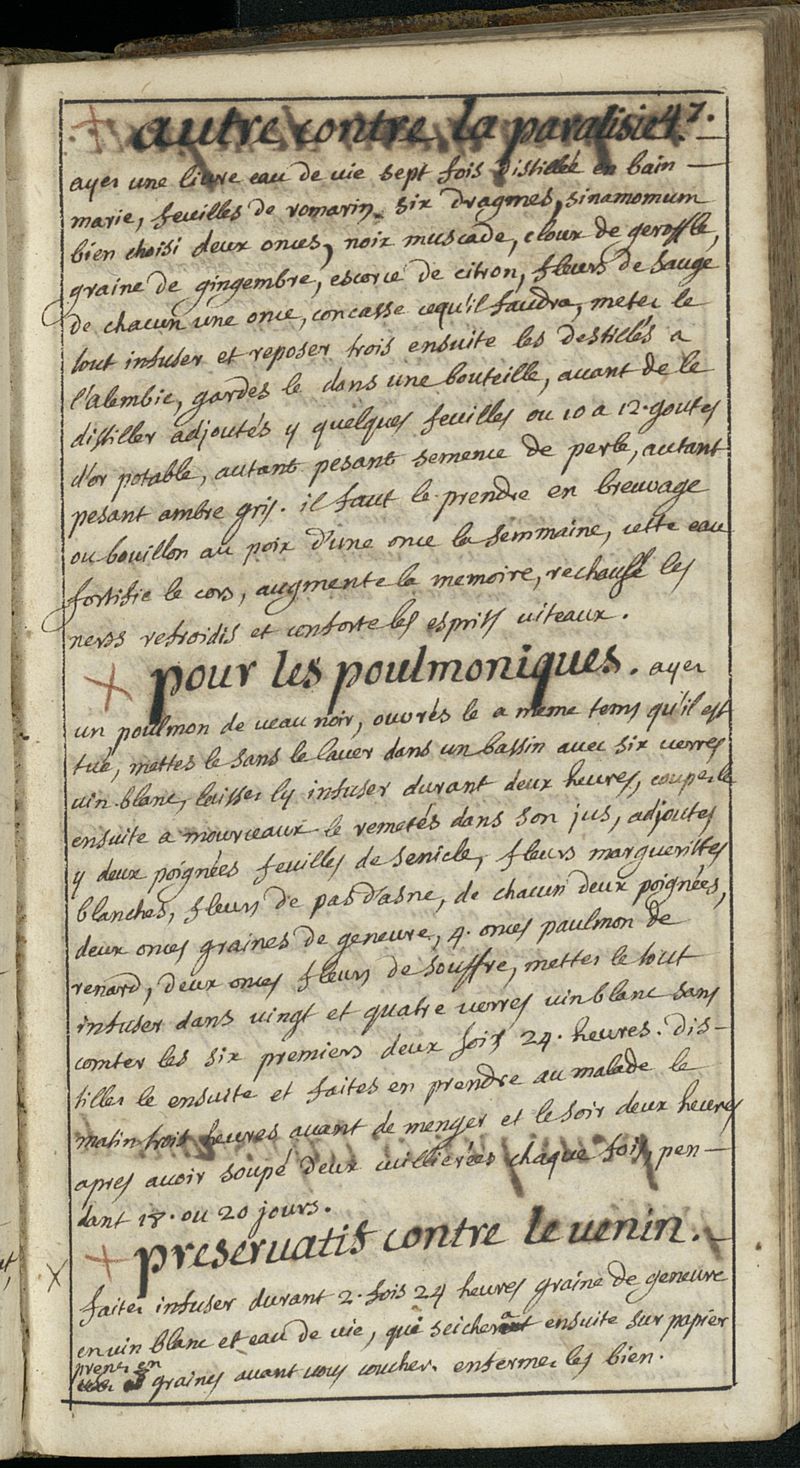 autre contre la paralisie. 47.
ayez une livre eau de vie sept fois distillée en bain
marie, feuilles de romarin six dragmes, sinamomum
bien choisi deux onces, noix muscade, cloux de geroffle,
graine de gingembre, escorce de citron, fleurs de sauge
de chacun une once, concasse cequ'il faudra, metez le
tout infuser et reposer trois ensuite les destillés a
l'alembic, gardes le dans une bouteille, avant de le
distiller adjoutés y quelques feuilles ou 10 a 12. goutes
d'or potable, autant pesant semence de perle, autant
pesant ambre gris. il faut le prendre en breuvage
ou bouillon au poix d'une once la semmaine, cette eau
fortifie le cors, augmente la memoire, rechauffe les
nerfs refroidis et conforte les esprits viteaux.
pour les poulmoniques. ayez
un poulmon de veau noir, ouvrés le a meme tems qu'il est
tué, mettes le sans le laver dans un bassin avec six verres
vin blanc, laissez ly infuser durant deux heures, coupez le
ensuite a mourceaux le remetés dans son jus, adjoutes
y deux poignées feuilles de senicle, fleurs marguerittes
blanches, fleurs de pas d'asne, de chacun deux poignées,
deux onces graines de genevre, 4. onces paulmon de
renard, deux onces fleurs de souffre, mettez le tout
infuser dans vingt et quatre verres vin blanc sans
comter les six premiers deux fois 24. heures. dis-
tillez le ensuite et faites en prendre au malade le
matin trois heures avant de menger et le soir deux heures
apres avoir soupé deux cuillierées chaque fois, pen-
dant 18. ou 20 jours.
preservatif contre le venin.
faites infuser durant 2. fois 24 heures graine de genevre
en vin blanc et eau de vie, que seicherat ensuite sur papier
prenez en
graines avant vous coucher. enfermez les bien.